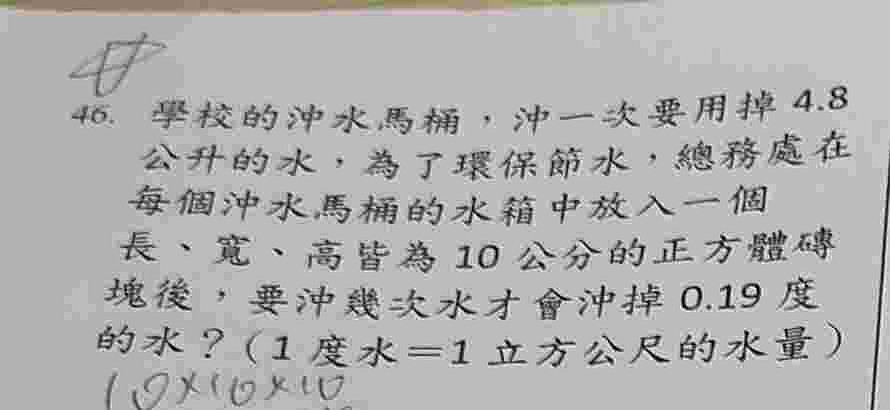 46. 學校的沖水馬桶，沖一次要用掉 4.8
公升的水，為了環保節水，總務處在
每個沖水馬桶的水箱中放入一個
長、寬、高皆為 10 公分的正方體磚
塊後，要沖幾次水才會沖掉 0.19 度
的水？（1 度水＝1 立方公尺的水量）
10×10×10